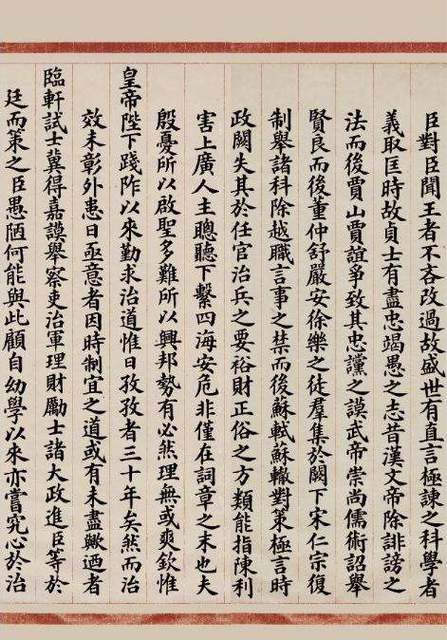 臣對臣聞王者不吝改過故盛世有直言極諫之科學者
義取匡時故貞士有盡忠竭愚之志昔漢文帝除誹謗之
法而後賈山賈誼爭致其忠讜之謨武帝崇尚儒術詔舉
賢良而後董仲舒嚴安徐樂之徒羣集於闕下宋仁宗復
制舉諸科除越職言事之禁而後蘇軾蘇轍對策極言時
政闕失其於任官治兵之要裕財正俗之方類能指陳利
害上廣人主聰聽下繫四海安危非僅在詞章之末也夫
殷憂所以啟聖多難所以興邦勢有必然理無或爽欽惟
皇帝陛下踐阼以來勤求治道惟日孜孜者三十年矣然而治
效未彰外患日亟意者因時制宜之道或有未盡歟迺者
臨軒試士冀得嘉謨舉察吏治軍理財勵士諸大政進臣等於
廷而策之臣愚陋何能與此顧自幼學以來亦嘗究心於治